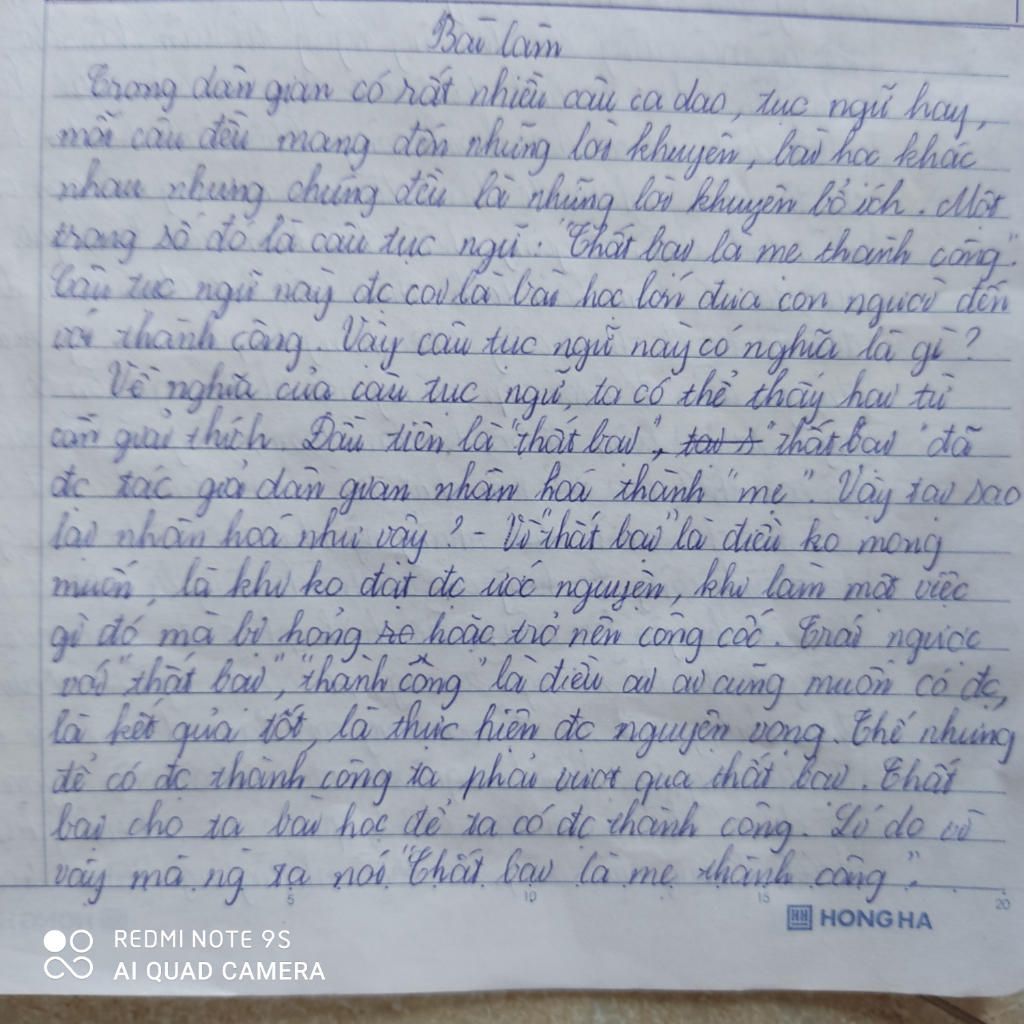 Bài làm
Trong dân gian có rất nhiều câu ca dao, tục ngữ hay,
mỗi câu đều mang đến những lời khuyên, bài học khác
nhau nhưng chúng đều là những lời khuyên bổ ích. Một
trong số đó là câu tục ngữ: "Thất bại là mẹ thành công".
Câu tục ngữ này đc coi là bài học lớn đưa con người đến
với thành công. Vậy câu tục ngữ này có nghĩa là gì?
Về nghĩa của câu tục ngữ, ta có thể thấy hai từ
cần giải thích. Đầu tiên là "thất bại", "thất bại" đã
đc tác giả dân gian nhân hoá thành "mẹ". Vậy tại sao
lại nhân hoá như vậy? - Vì "thất bại" là điều ko mong
muốn, là khi ko đạt đc ước nguyện, khi làm một việc
gì đó mà bị hỏng hoặc trở nên công cốc. Trái ngược
với "thất bại", "thành công" là điều ai ai cũng muốn có đc,
là kết quả tốt, là thực hiện đc nguyện vọng. Thế nhưng
để có đc thành công ta phải vượt qua thất bại. Thất
bại cho ta bài học để ta có đc thành công. Lí do vì
vậy mà ng ta nói "Thất bại là mẹ thành công".
5 10 15 20
HONG HA
REDMI NOTE 9S
AI QUAD CAMERA